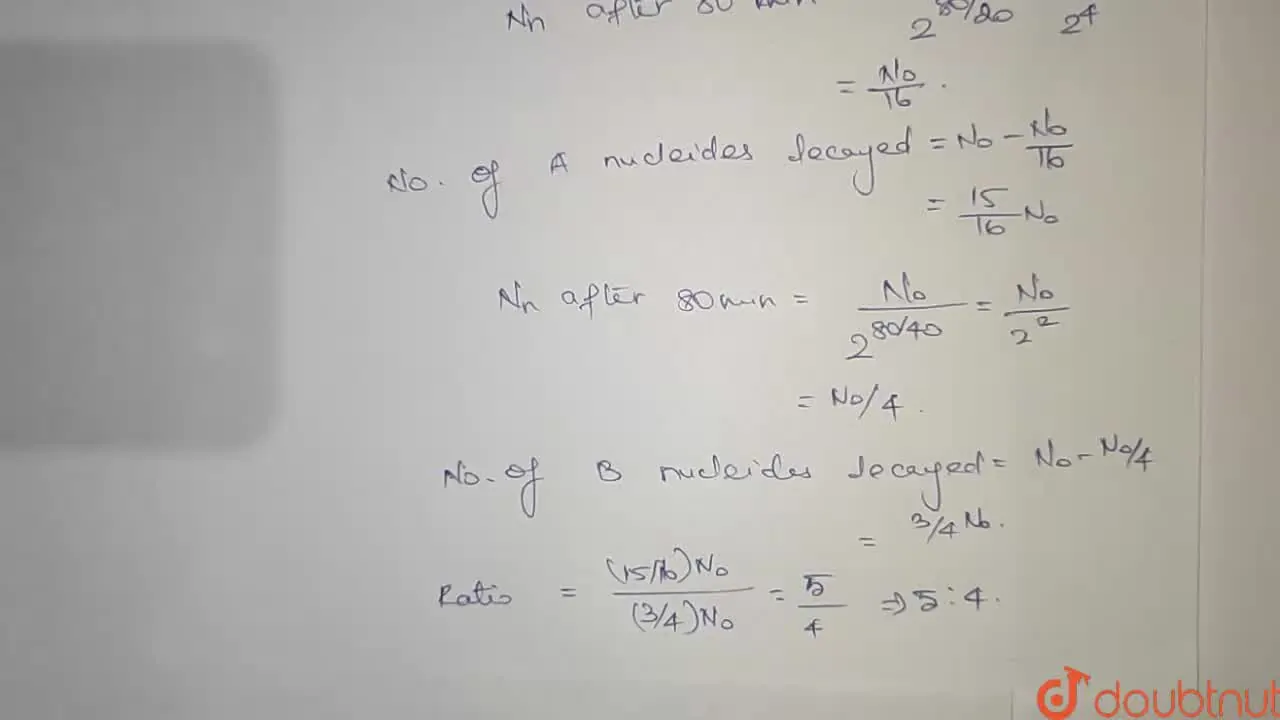 Nn after 80 min
2^80/20 2^4
= No/16 .
No. of A nucleides decayed = No - No/16
= 15/16 No
Nn after 80min = No/2^80/40 = No/2^2
= No/4 .
No. of B nucleides decayed = No - No/4
= 3/4 No.
Ratio = (15/16)No/(3/4)No = 5/4 ⇒ 5:4.
doubtnut